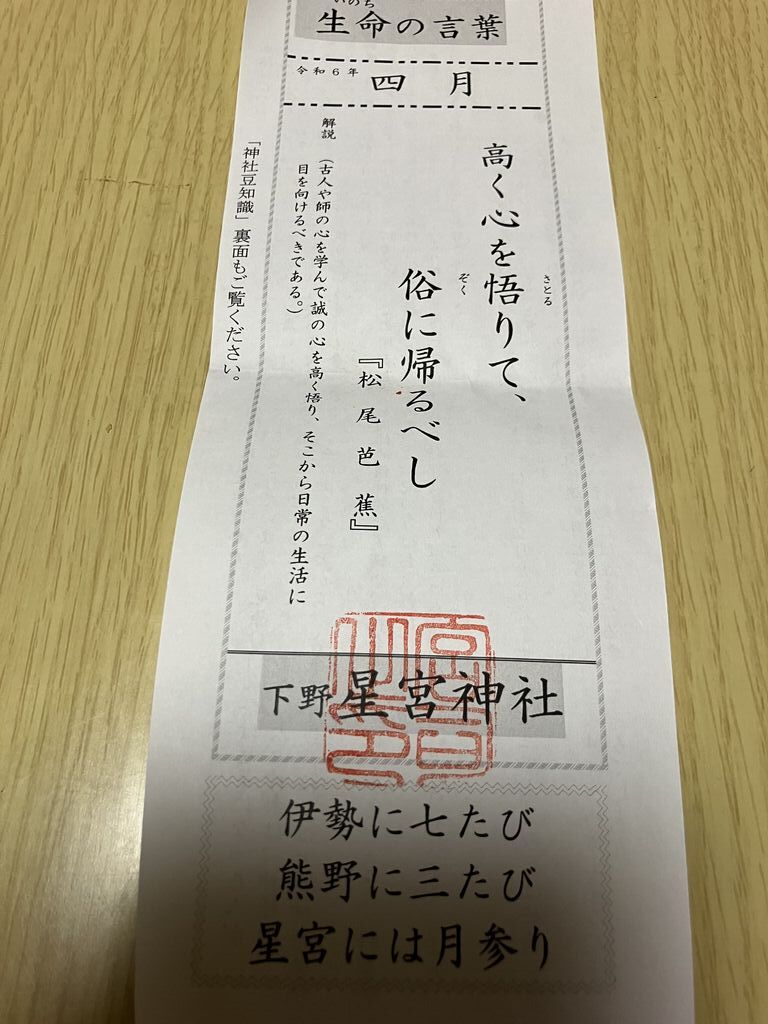 いのち
生命の言葉
令和6年
四月
高く心を悟りて、
さとる
俗に帰るべし
ぞく
『松尾芭蕉』
解説
(古人や師の心を学んで誠の心を高く悟り、そこから日常の生活に
目を向けるべきである。)
「神社豆知識」裏面もご覧ください。
下野星宮神社
伊勢に七たび
熊野に三たび
星宮には月参り